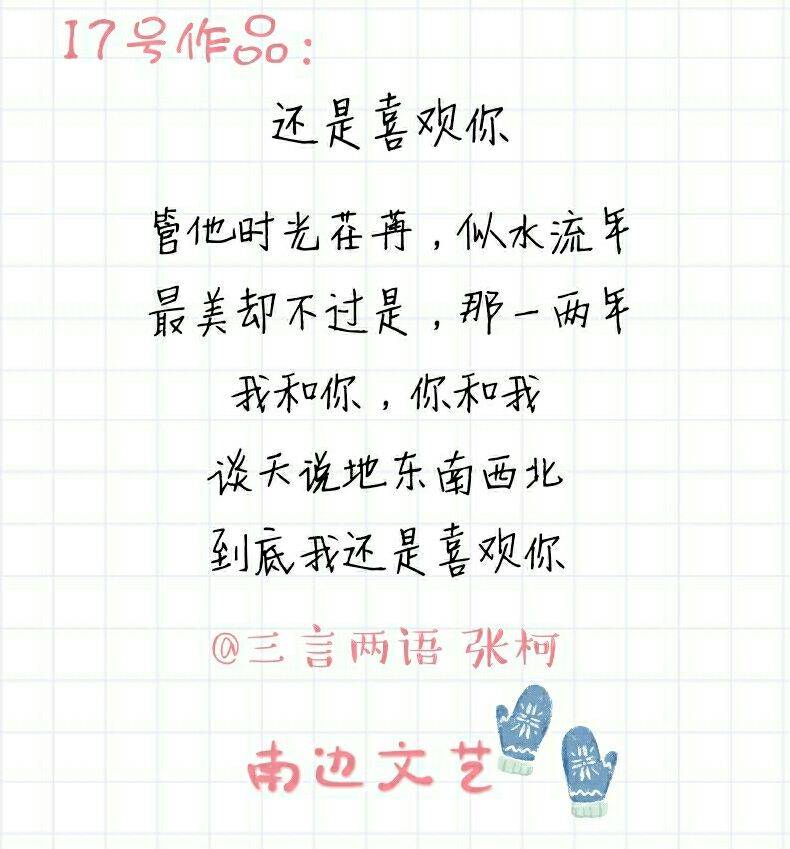 17号作品:
还是喜欢你
管他时光荏苒,似水流年
最美却不过是,那一两年
我和你,你和我
谈天说地东南西北
到底我还是喜欢你
@三言两语 张柯
南边文艺